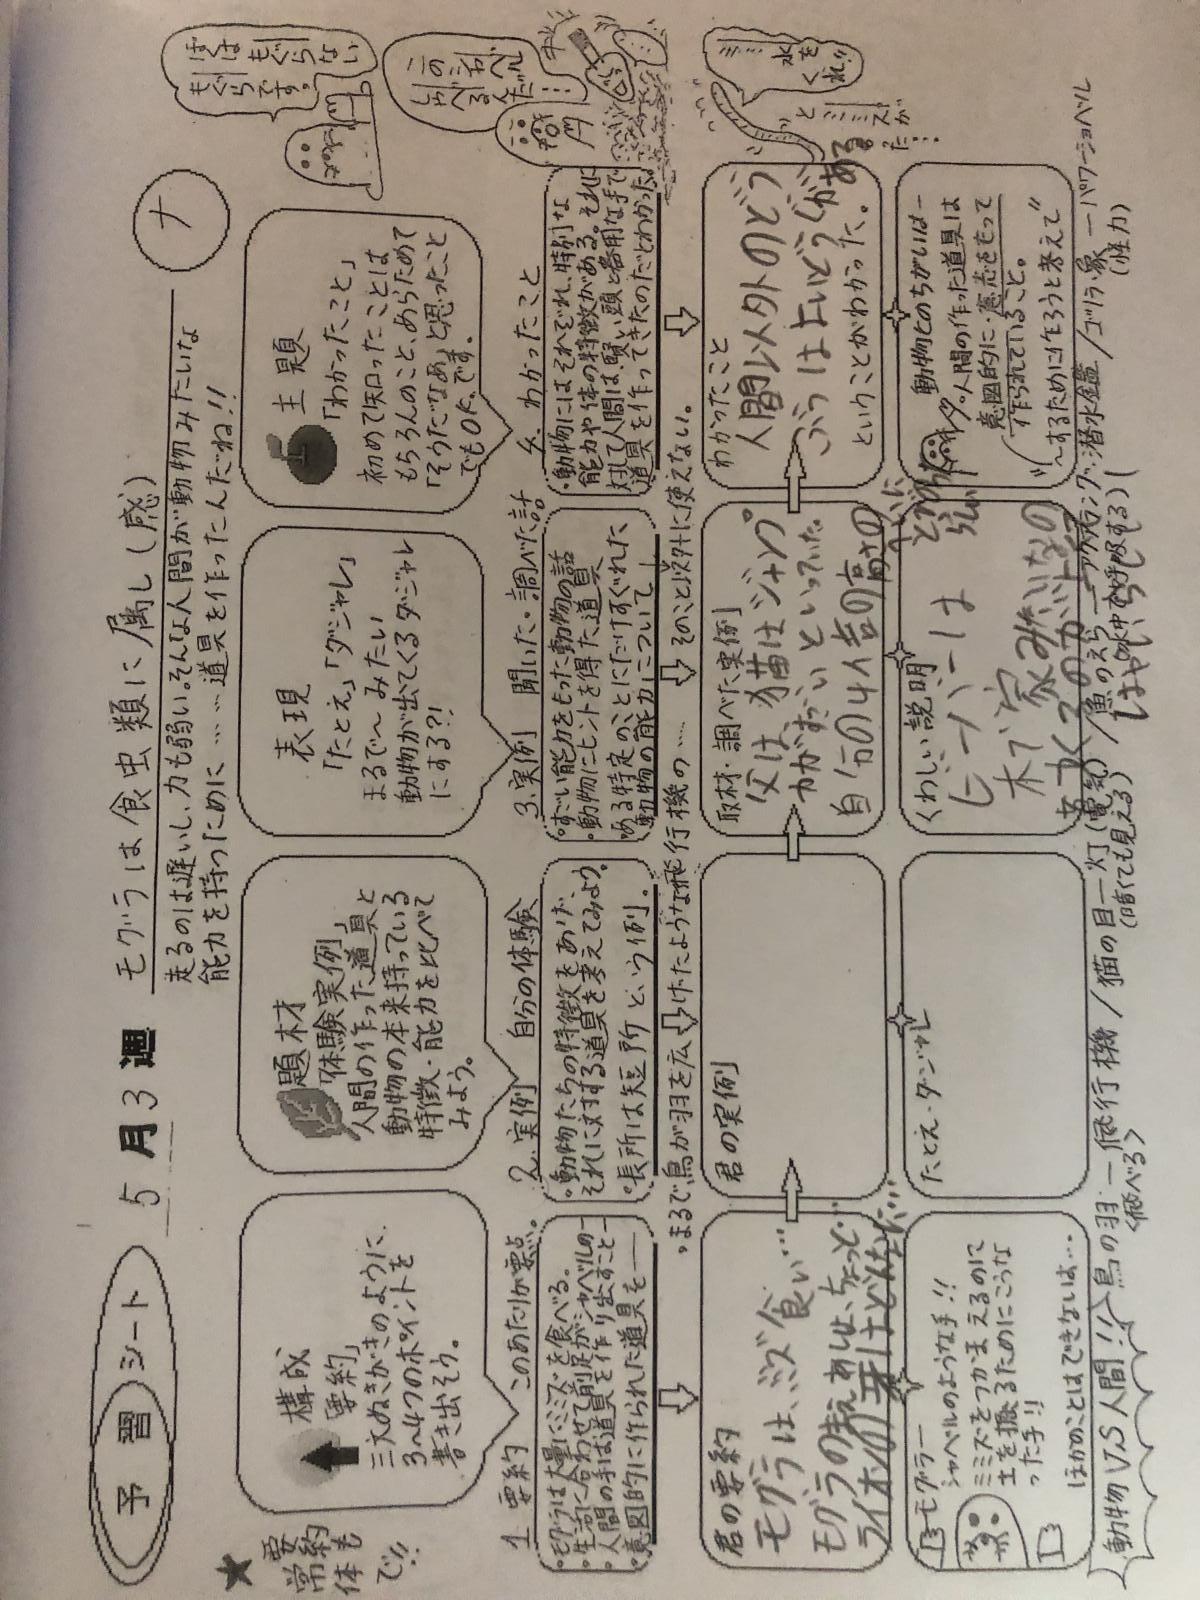 予習シート
5月3週
モグラは食虫類に属し(感)
ナ
走るのは遅いし、力も弱い。そんな人間が動物みたいな
能力を持つために……道具を作ったんだね!!
★要約も
常体で!!
構成
「要約」
三文ぬきがきのように、
3〜4つのポイントを
書き出そう。
題材
「体験実例」
人間の作った道具と
動物の本来持っている
特徴・能力を比べて
みよう。
表現
「たとえ」「ダジャレ」
まるで〜みたい
動物が出てくるダジャレ
にする?!
主題
「わかったこと」
初めて知ったことは
もちろんのこと、あらためて
「そうだなあ」と思ったこと
でもOK、です。
ぼくは
もぐらない
もぐらです。
このシャベル
しゃべるんだ……
1.要約 このあたりが要点。
・モグラは大量にミミズを食べる。
・生活に合わせて前足がシャベルの—
・人間の手は道具を作り出すこと—
・意図的に作られた道具を——
2.実例 自分の体験
・動物たちの特徴をあげ、
それに対する道具を考えてみよう。
・長所は短所 という例。
3.実例 聞いた・調べた話
・すごい能力をもった動物の話
・動物にヒントを得た道具
・ある特定のことにだけすぐれた
動物の能力について—
4.わかったこと
・動物にはそれぞれ、特別な
能力や体の特徴がある。それに
対して人間は、賢い頭と器用な手で
道具を作ってきたのだとわかった。
・まるで、鳥が羽を広げたような飛行機の……
そのこと以外に使えない。
君の要約
モグラは、ミミズ食い…
君の実例
取材・調べた実例
父は、猫はジャンプ
力がすごいといっていた。
自分の4〜倍の高さの
わかったこと
人間以外のどう
ぶつは上いどうぐがある
ということがわかった。
水を
くれ!!
とミミズが
モグラー
シャベルのような手!!
ミミズをつかまえるのに
土を掘るためにこうな
った手!!
ほかのことはできないは…
たとえ・ダジャレ
くわしい説明
ビーバーは
木で家みたいなの
動物とのちがいは—
人間の作った道具は
意図的に・意志をもって
作られていること。
〜するために作ろうと考えて"
動物V.S人間!!
鳥の羽—飛行機/猫の目—灯(電気)/魚のえら—アクアラング・潜水艦/ゴリラ・象—パワーショベル
<飛べる>
(暗くても見える)
(水中で呼吸する)
(怪力)